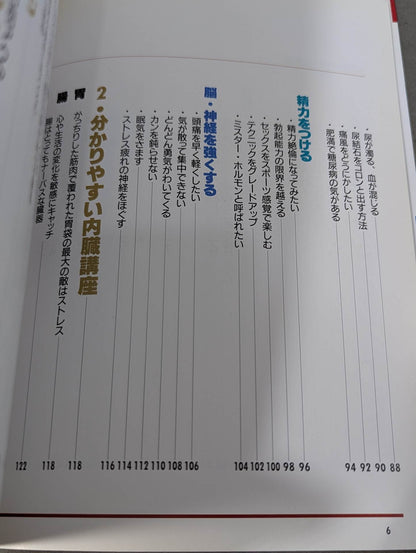 ・尿が濁る、血が混じる 88
・尿結石をコロンと出す方法 90
・痛風をどうにかしたい 92
・肥満で糖尿病の気がある 94
精力をつける
・精力絶倫になってみたい 96
・勃起能力の限界を越える 98
・セックスをスポーツ感覚で楽しむ 100
・テクニックをグレードアップ 102
・ミスター・ホルモンと呼ばれたい 104
脳・神経を強くする
・頭痛を早く軽くしたい 106
・気が散って集中できない 108
・どんどん勇気がわいてくる 110
・カンを鈍らせない 112
・眠気をさます 114
・ストレス疲れの神経をほぐす 116
2・分かりやすい内臓講座
胃 がっちりした筋肉で覆われた胃袋の最大の敵はストレス 118
心や生活の変化を敏感にキャッチ 118
腸 腸はとってもナーバスな臓器 122
6